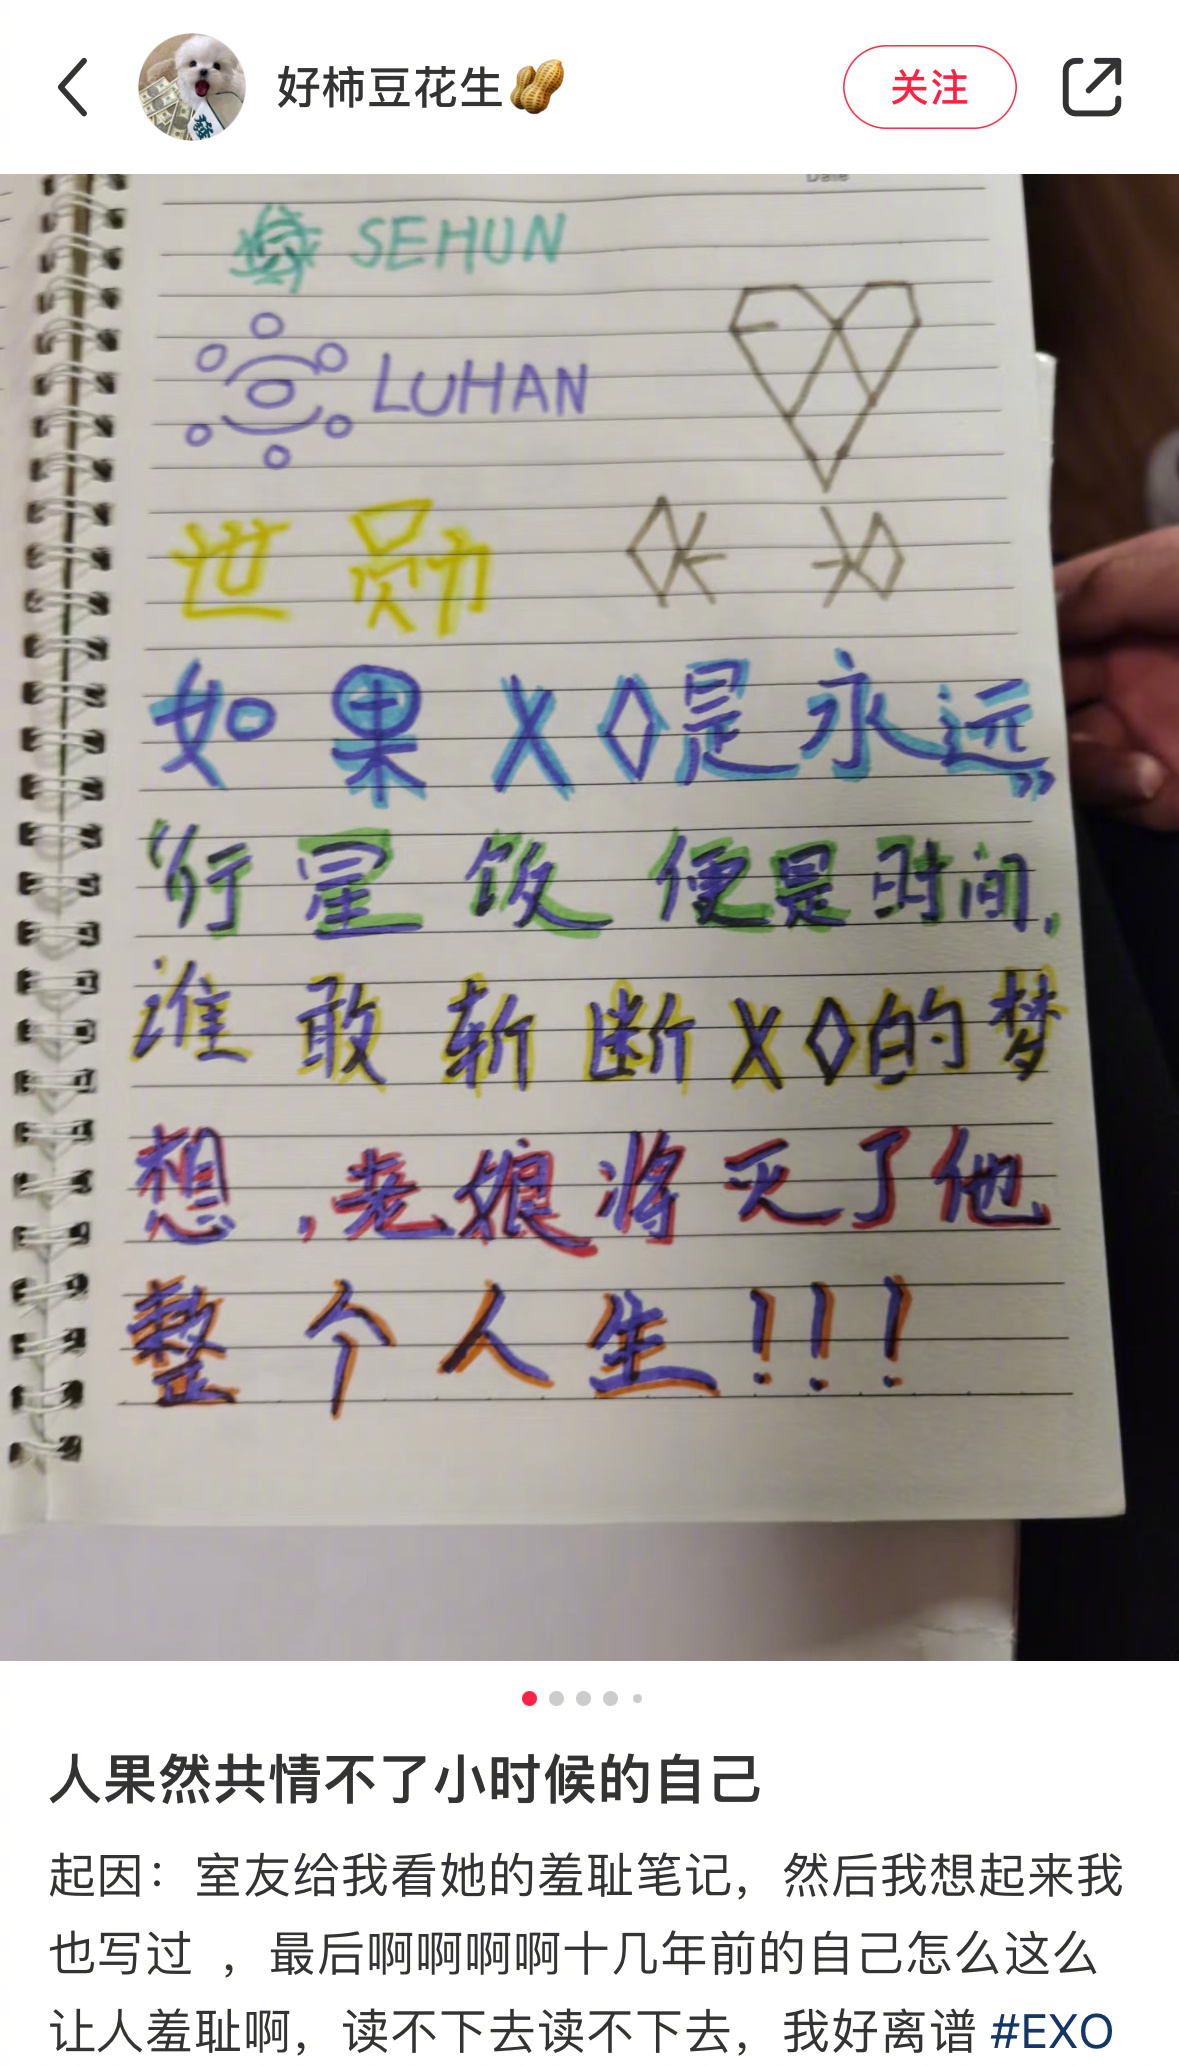 好柿豆花生🥜
关注
Date
SEHUN
LUHAN
世勋
如果XO是永远”
“行星饭便是时间,
谁敢斩断XO的梦
想,老娘将灭了他
整个人生!!!
人果然共情不了小时候的自己
起因：室友给我看她的羞耻笔记，然后我想起来我
也写过 ，最后啊啊啊啊十几年前的自己怎么这么
让人羞耻啊，读不下去读不下去，我好离谱 #EXO